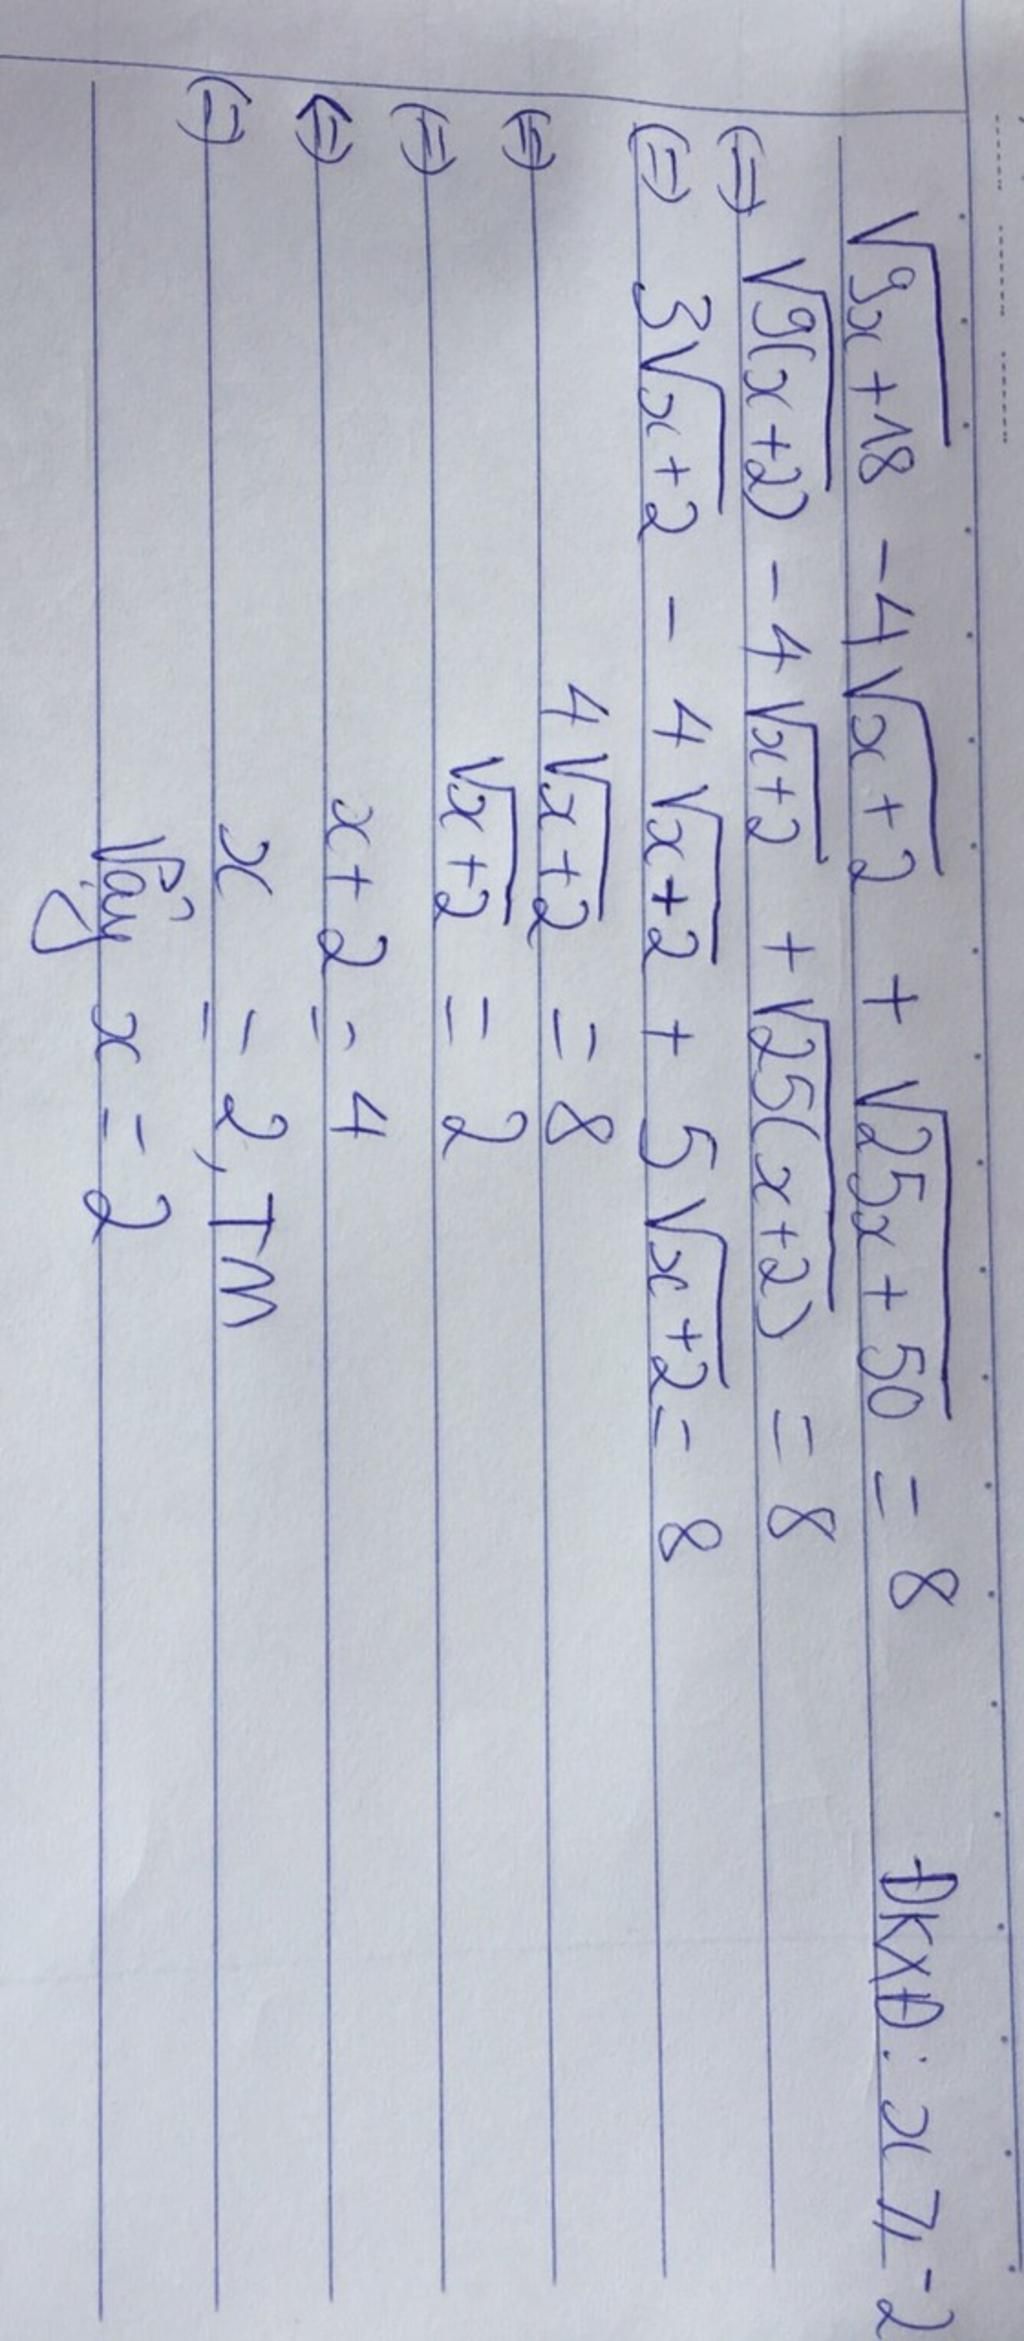 √9x+18 - 4√x+2 + √25x+50 = 8 ĐKXĐ: x ≥ -2
⇔ √9(x+2) - 4√x+2 + √25(x+2) = 8
⇔ 3√x+2 - 4√x+2 + 5√x+2 = 8
⇔ 4√x+2 = 8
⇔ √x+2 = 2
⇔ x+2 = 4
⇔ x = 2, TM
Vậy x = 2